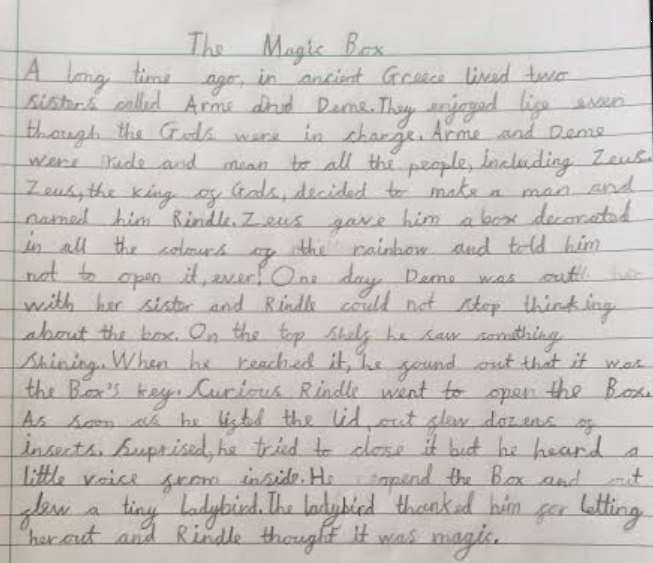 The Magic Box
A long time ago, in ancient Greece lived two
sisters called Arme and Deme. They enjoyed life even
though the Gods were in charge. Arme and Deme
were rude and mean to all the people, including Zeus.
Zeus, the king of Gods, decided to make a man and
named him Rindle. Zeus gave him a box decorated
in all the colours of the rainbow and told him
not to open it, ever! One day Deme was out her
with her sister and Rindle could not stop thinking
about the box. On the top shelf he saw something
shining. When he reached it, he found out that it was
the Box's key. Curious Rindle went to open the Box.
As soon as he lifted the lid out flew dozens of
insects. Suprised, he tried to close it but he heard a
little voice from inside. He opend the Box and out
flew a tiny Ladybird. The ladybird thanked him for letting
her out and Rindle thought it was magic.